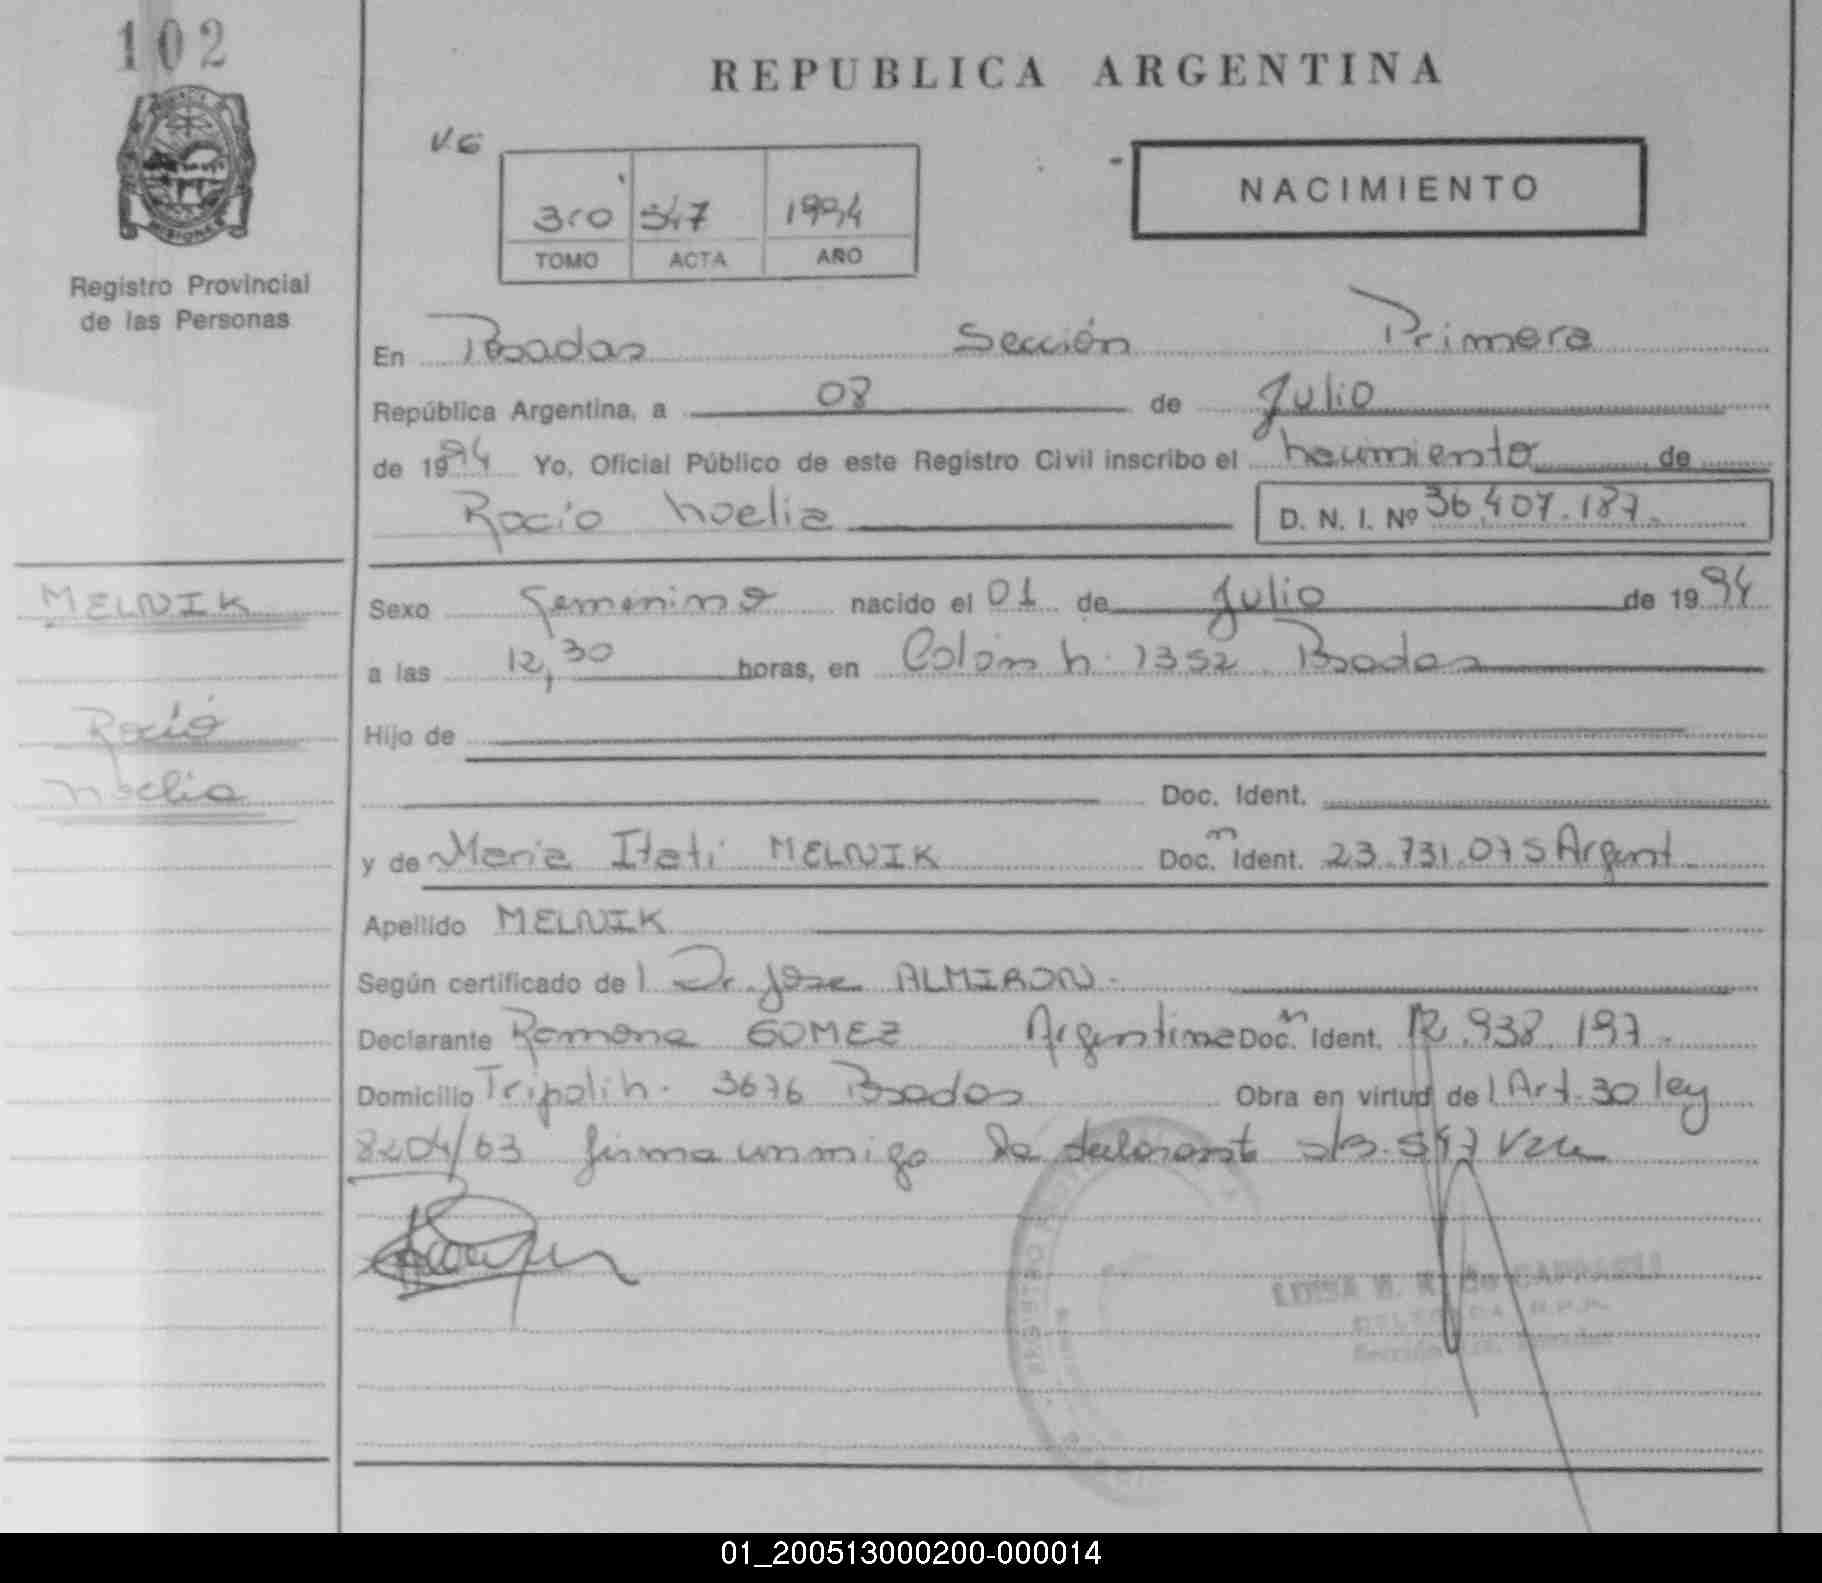 102
REPUBLICA ARGENTINA
V.G
NACIMIENTO
547 1994
TOMO ACTA AÑO
MISIONES
Registro Provincial
de las Personas
En Posadas Sección Primera
República Argentina, a 08 de Julio
de 1994 Yo, Oficial Público de este Registro Civil inscribo el nacimiento de
Rocio Noelia D. N. I. Nº 36.407.187.
MELNIK
Rocio
Noelia
Sexo Femenino nacido el 01 de Julio de 1994
a las 12,30 horas, en Colón n. 1352 Posadas
Hijo de
Doc. Ident.
y de Maria Itati MELNIK Doc. n Ident. 23.731.075 Argent
Apellido MELNIK
Según certificado de l Dr. Jose ALMIRON.
Declarante Ramona GOMEZ Argentina Doc. n Ident. 12.938.197.
Domicilio Tripoli n. 3676 Posadas Obra en virtud de l Art. 30 ley
8204/63 firma conmigo la declarante
LUISA de
DELEGADA R.P.P.
Sección 1ra. Posadas
01_200513000200-000014